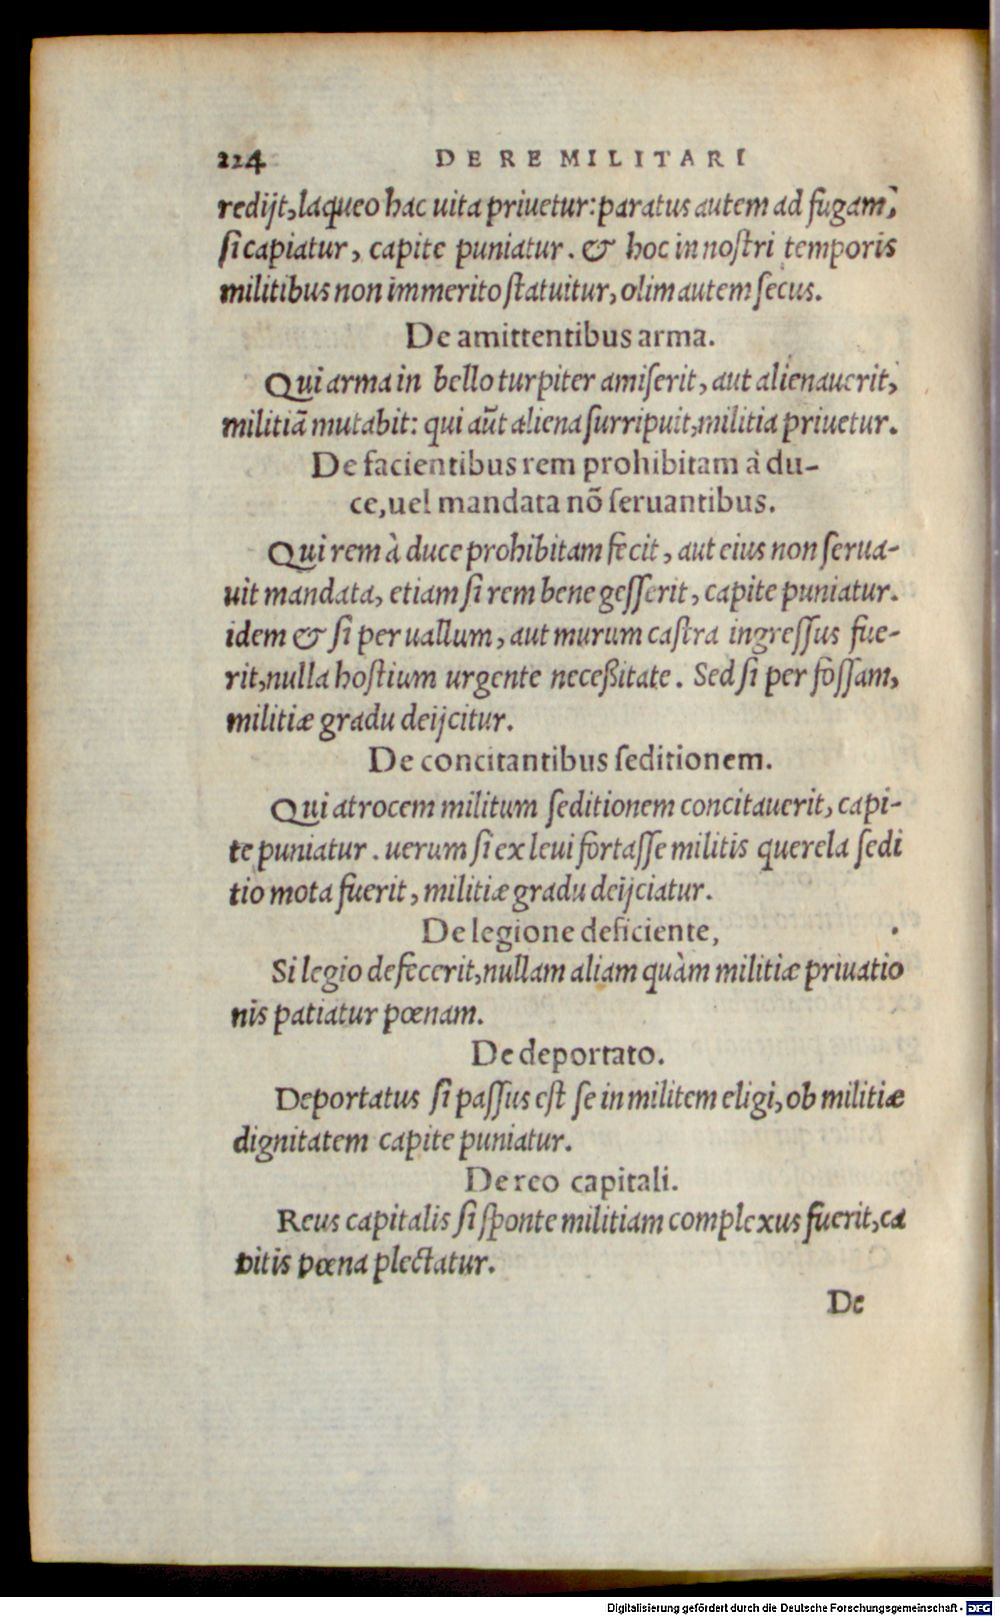 224 DE RE MILITARI
redijt, laqueo hac uita priuetur: paratus autem ad fugam,
si capiatur, capite puniatur. & hoc in nostri temporis
militibus non immerito statuitur, olim autem secus.
De amittentibus arma.
Qui arma in bello turpiter amiserit, aut alienauerit,
militiã mutabit: qui aũt aliena surripuit, militia priuetur.
De facientibus rem prohibitam à du-
ce, uel mandata nõ seruantibus.
Qui rem à duce prohibitam fecit, aut eius non serua-
uit mandata, etiam si rem bene gesserit, capite puniatur.
idem & si per uallum, aut murum castra ingressus fue-
rit, nulla hostium urgente necessitate. Sed si per fossam,
militiæ gradu deijcitur.
De concitantibus seditionem.
Qui atrocem militum seditionem concitauerit, capi-
te puniatur. uerum si ex leui fortasse militis querela sedi
tio mota fuerit, militiæ gradu deijciatur.
De legione deficiente,
Si legio defecerit, nullam aliam quàm militiæ priuatio
nis patiatur pœnam.
De deportato.
Deportatus si passus est se in militem eligi, ob militiæ
dignitatem capite puniatur.
De reo capitali.
Reus capitalis si sponte militiam complexus fuerit, ca
pitis pœna plectatur.
De
Digitalisierung gefördert durch die Deutsche Forschungsgemeinschaft - DFG